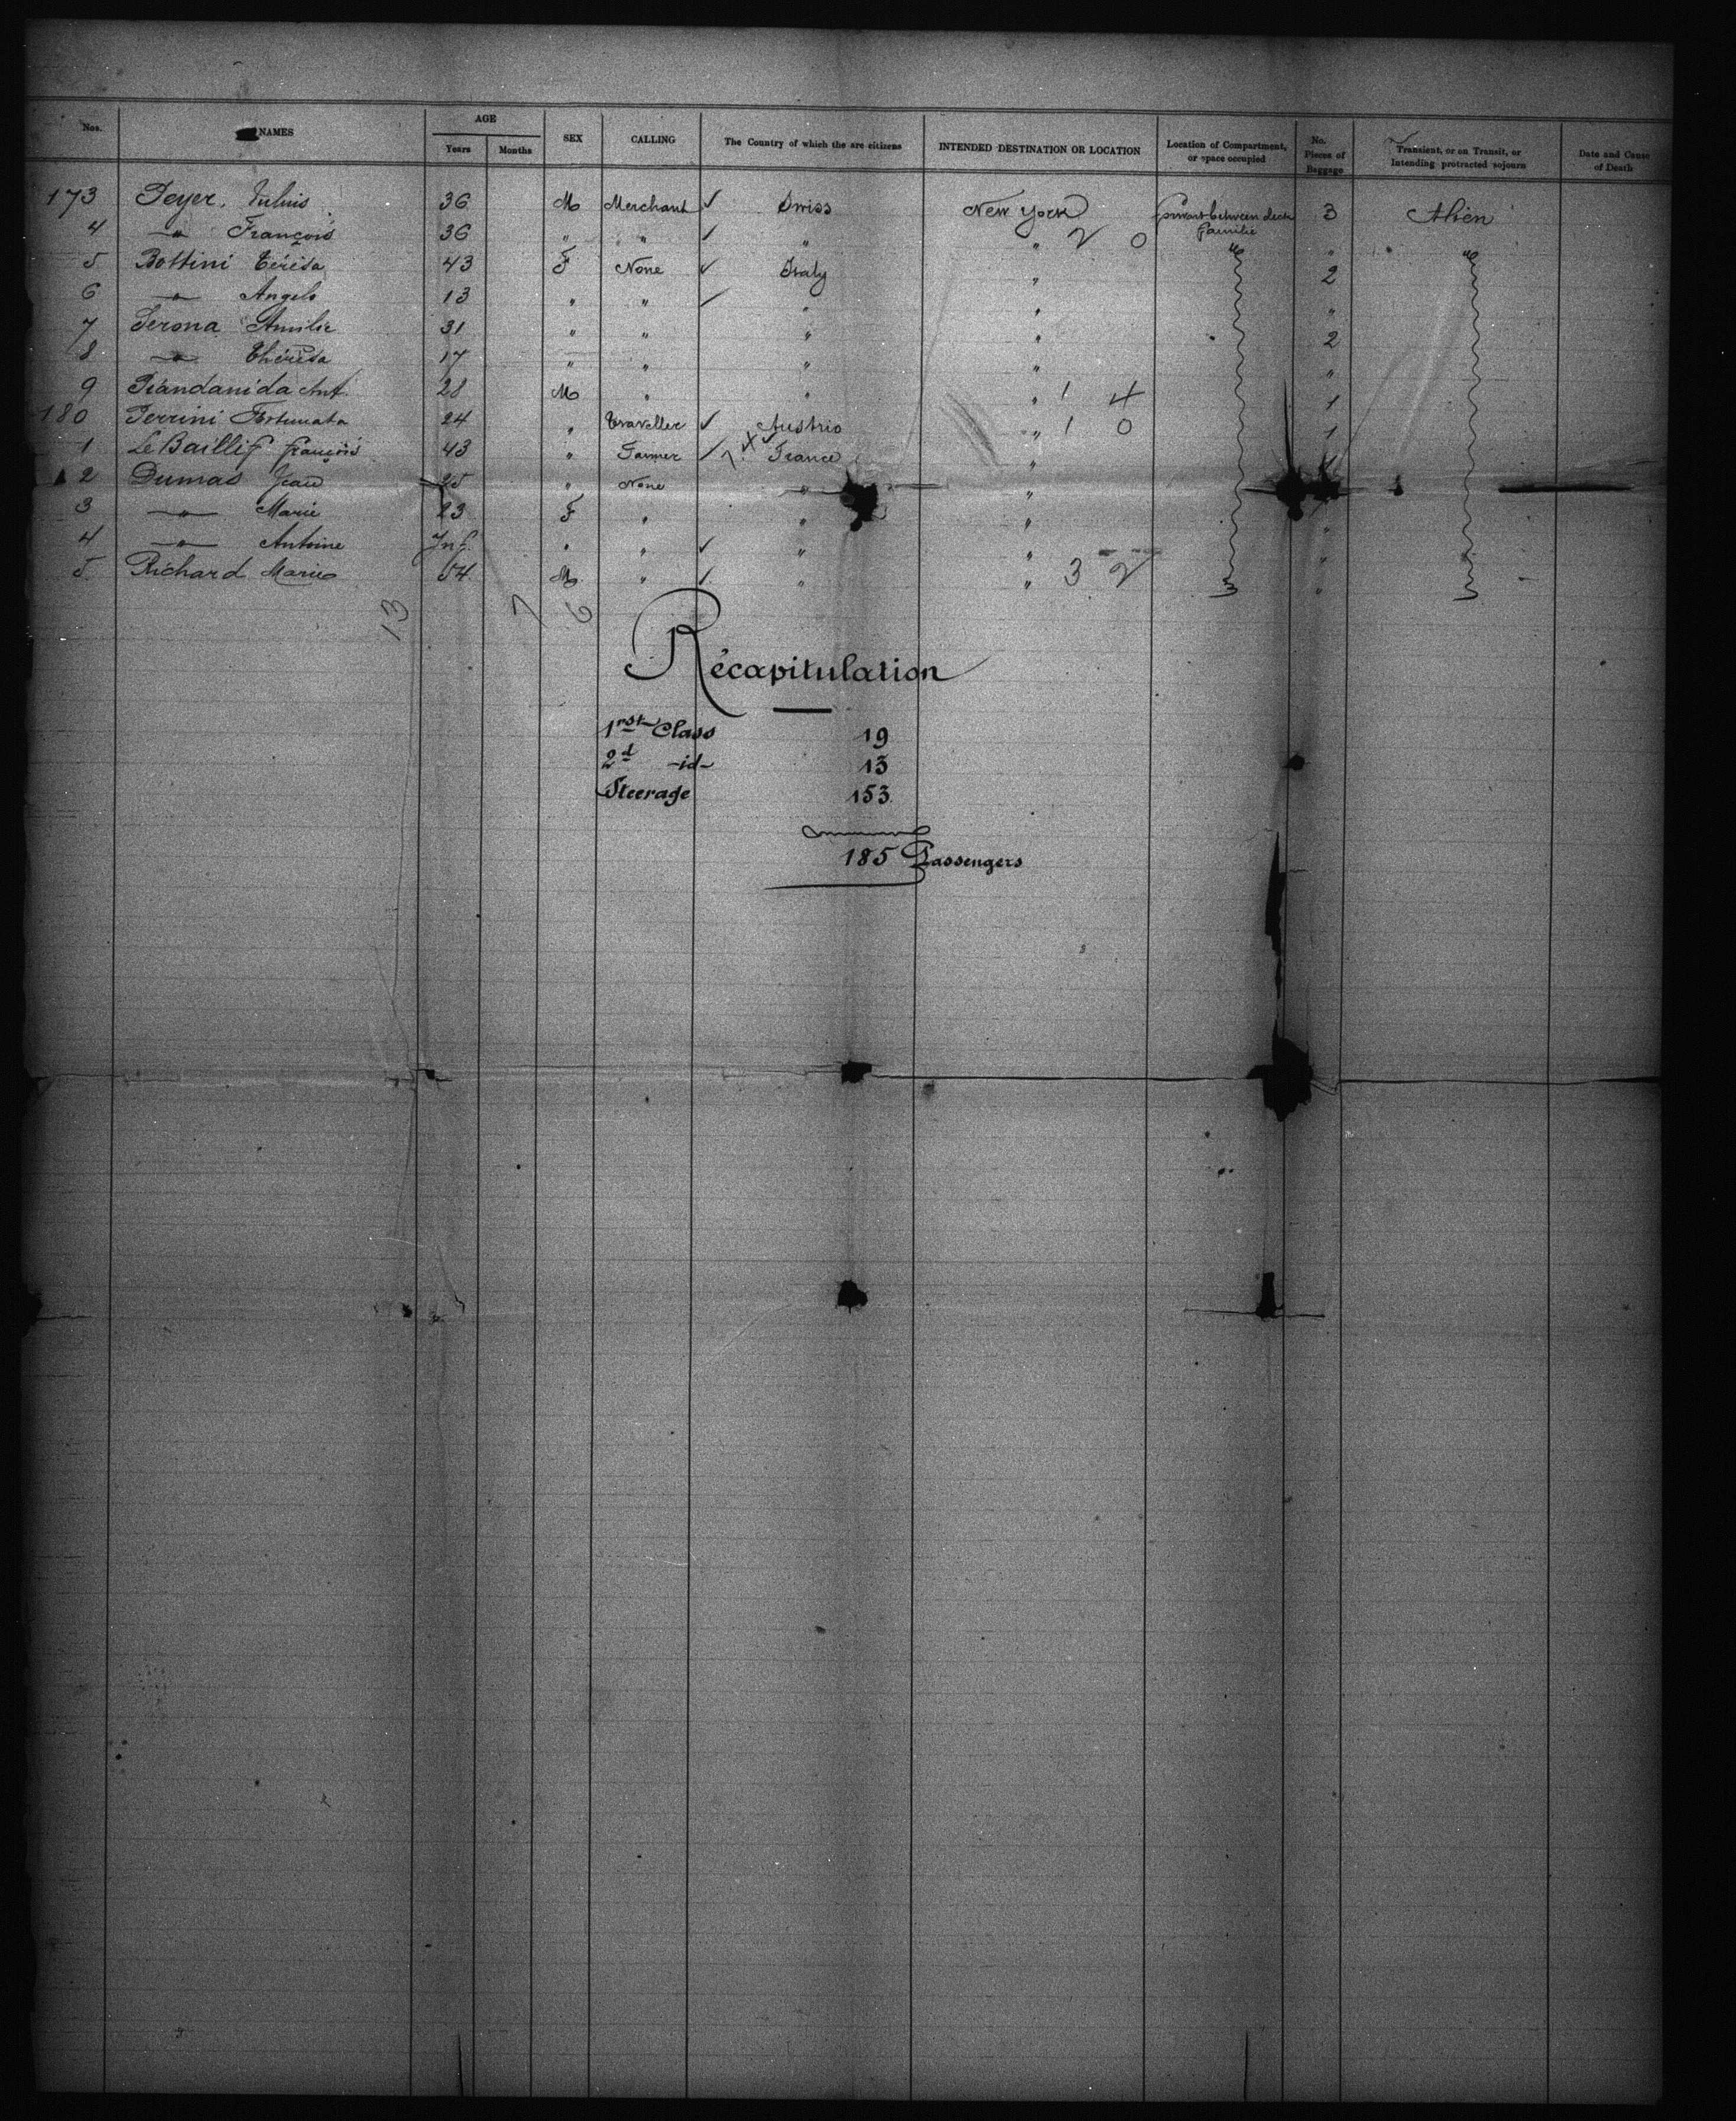 Nos. NAMES AGE Years Months SEX CALLING The Country of which the are citizens INTENDED DESTINATION OR LOCATION Location of Compartment, or space occupied No. Pieces of Baggage Transient, or on Transit, or Intending protracted sojourn Date and Cause of Death
173 Peyer, Julius 36 M Merchant ✓ Swiss New York between deck Famille 3 Alien
4 —"— François 36 " " ✓ " " 2 0 "
5 Bottini Térésa 43 F None ✓ Italy " 2
6 —"— Angelo 13 " " ✓ " " "
7 Perona Amilie 31 " " " " 2
8 —"— Thérésa 17 " " " " "
9 Piandanida Ant. 28 M " " " 1 4 1
180 Perrini Fortunata 24 " Traveller ✓ Austria " 1 0 1
1 Le Baillif François 43 " Farmer ✓ x ✓ France "
2 Dumas Jean 25 " None " "
3 —"— Marie 23 F " " " "
4 —"— Antoine Inf. " " ✓ " " "
5 Richard Marius 54 M " ✓ " " 3 2 "
13 7 6
Récapitulation
1rst Class 19
2d -id- 13
Steerage 153
185 Passengers